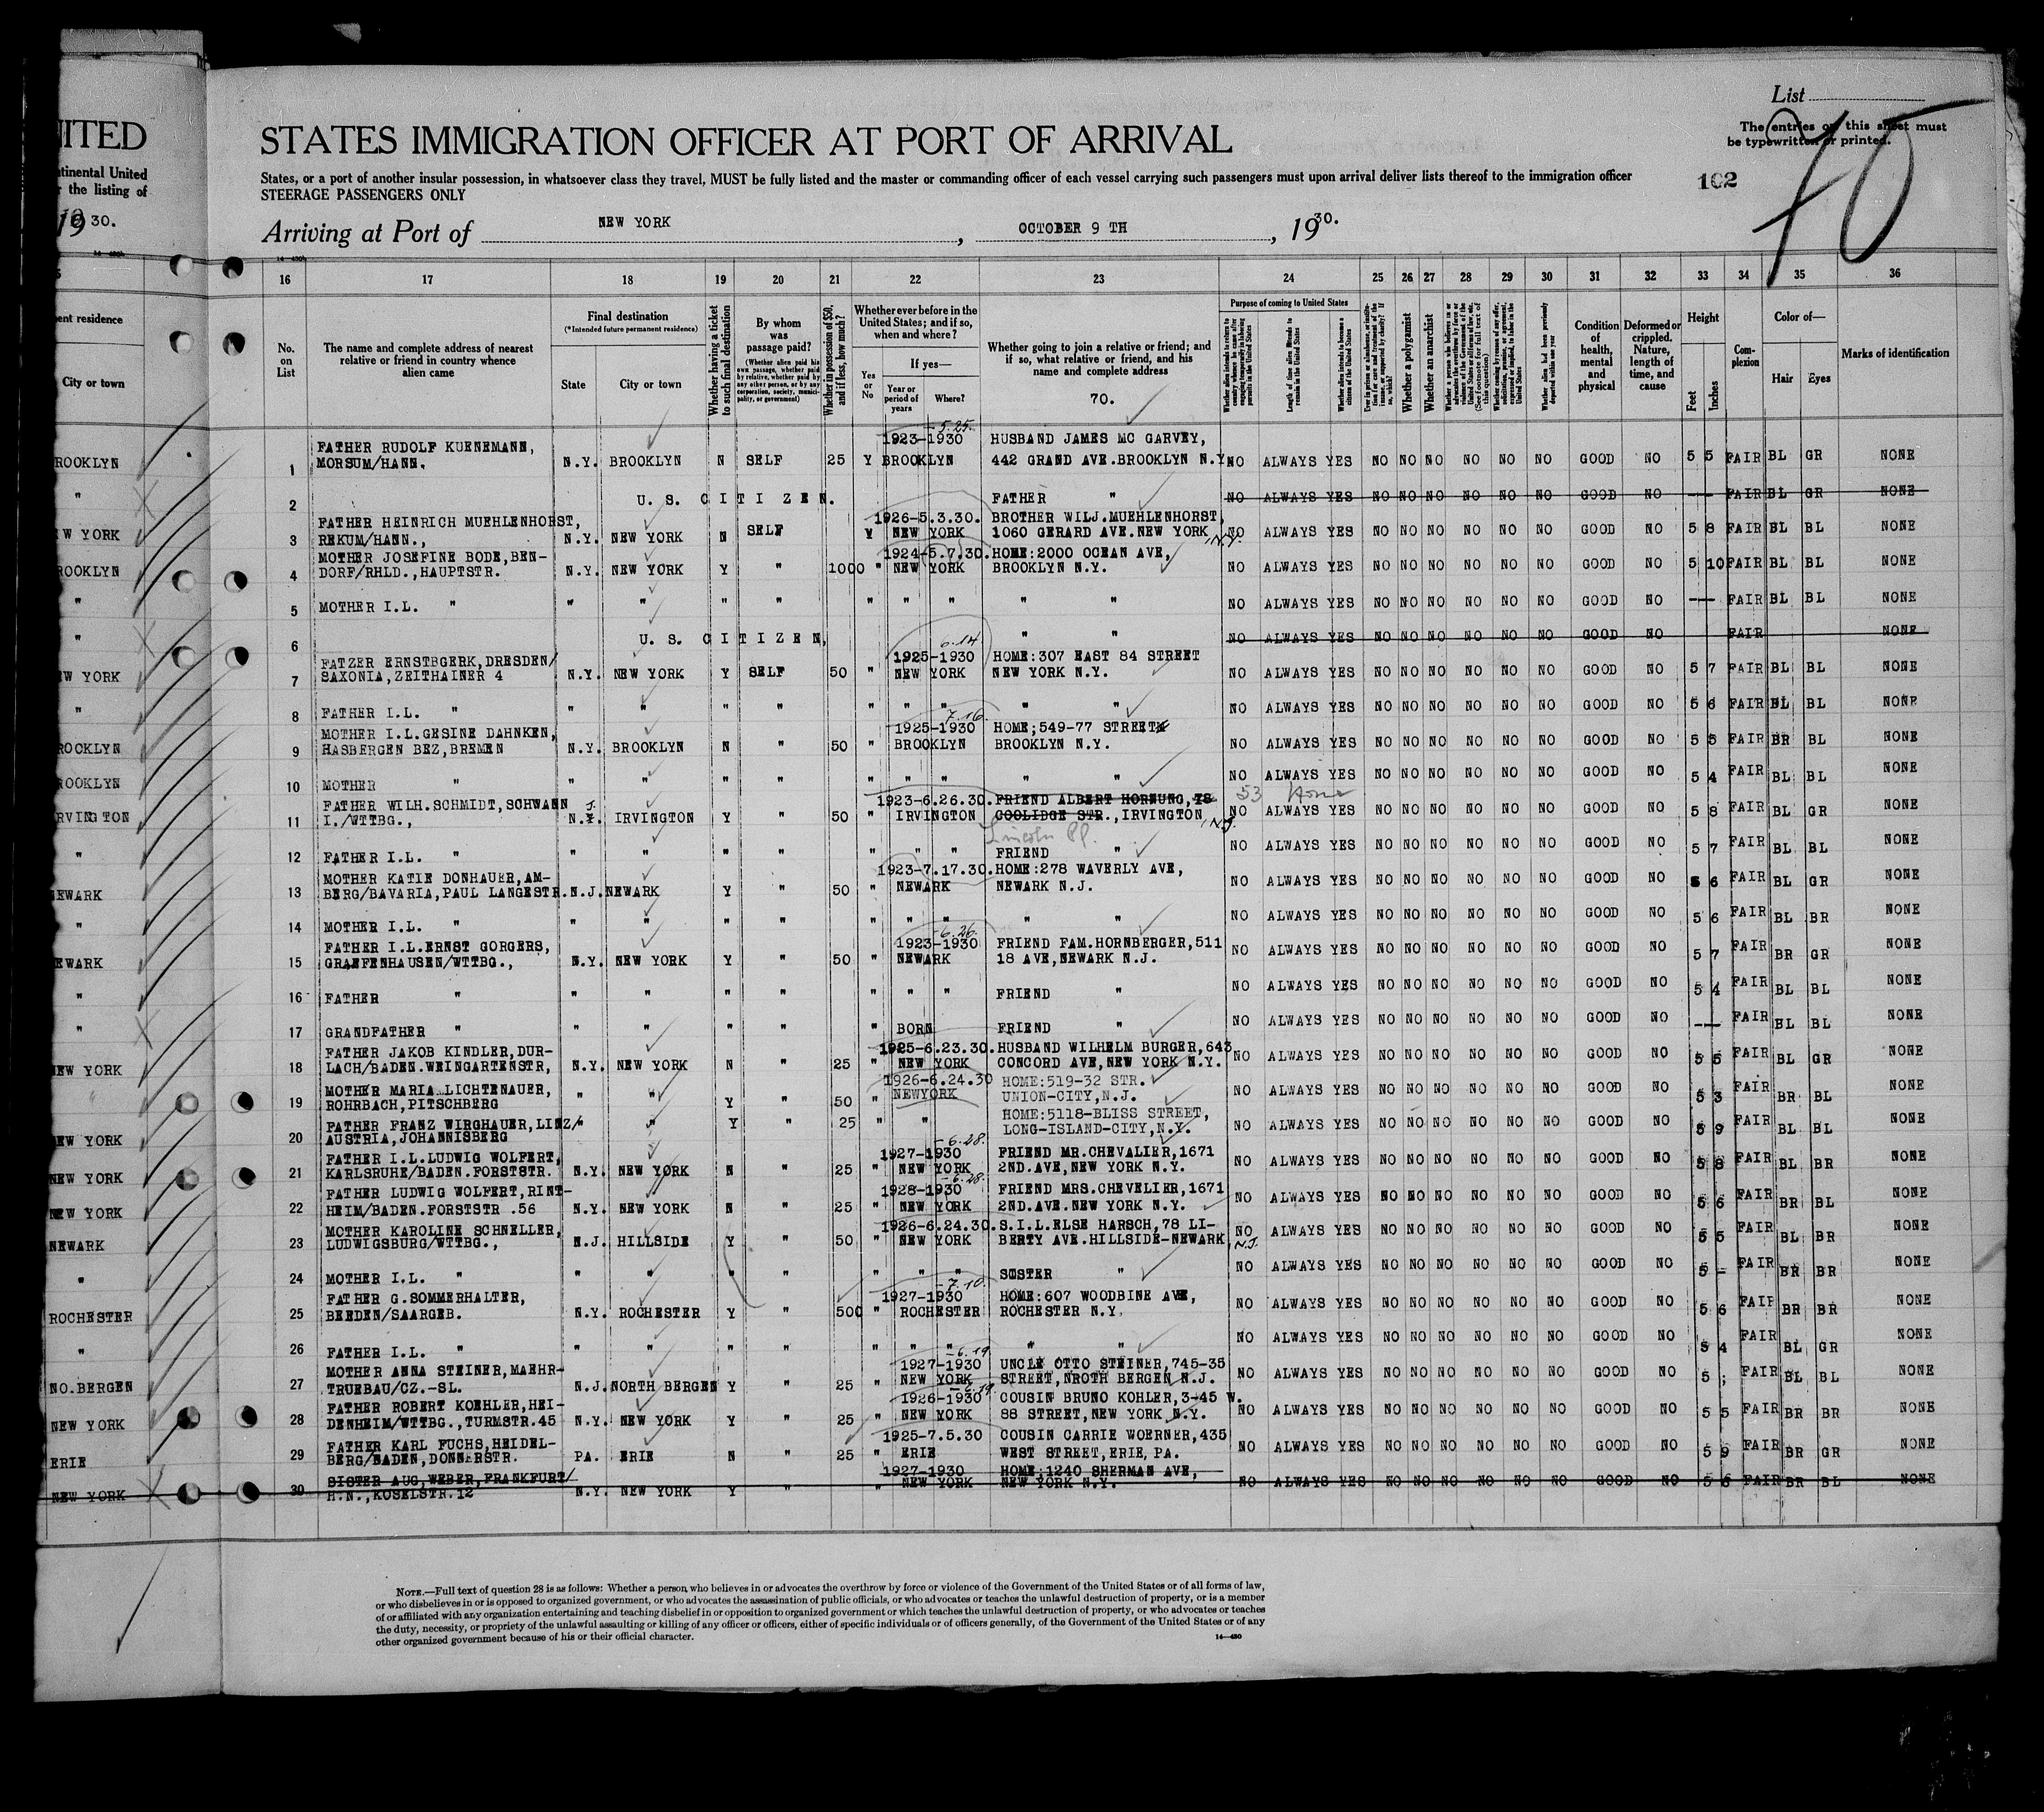 NITED
ntinental United
r the listing of
19 30.
ent residence
City or town
ROOKLYN
"
W YORK
ROOKLYN
"
"
W YORK
"
ROCKLYN
ROOKLYN
RVINGTON
"
EWARK
"
EWARK
"
"
NEW YORK
"
NEW YORK
NEW YORK
NEW YORK
NEWARK
"
ROCHESTER
"
NO.BERGEN
NEW YORK
ERIE
NEW YORK
List
The entries on this sheet must
be typewritten or printed.
STATES IMMIGRATION OFFICER AT PORT OF ARRIVAL
States, or a port of another insular possession, in whatsoever class they travel, MUST be fully listed and the master or commanding officer of each vessel carrying such passengers must upon arrival deliver lists thereof to the immigration officer
STEERAGE PASSENGERS ONLY
102
Arriving at Port of NEW YORK, OCTOBER 9 TH, 19 30.
16 17 18 19 20 21 22 23 24 25 26 27 28 29 30 31 32 33 34 35 36
No. on List
The name and complete address of nearest relative or friend in country whence alien came
Final destination
(*Intended future permanent residence)
State
City or town
Whether having a ticket to such final destination
By whom was passage paid?
(Whether alien paid his own passage, whether paid by relative, whether paid by any other person, or by any corporation, society, municipality, or government)
Whether in possession of $50, and if less, how much?
Whether ever before in the United States; and if so, when and where?
Yes or No
If yes—
Year or period of years
Where?
Whether going to join a relative or friend; and if so, what relative or friend, and his name and complete address
70.
Purpose of coming to United States
Length of time alien intends to remain in the United States
Whether alien intends to become a citizen of the United States
Whether a polygamist
Whether an anarchist
Condition of health, mental and physical
Deformed or crippled. Nature, length of time, and cause
Height
Feet
Inches
Complexion
Color of—
Hair
Eyes
Marks of identification
1 FATHER RUDOLF KUENEMANN, MORSUM/HANN. N.Y. BROOKLYN N SELF 25 Y 1923-1930 5.25. BROOKLYN HUSBAND JAMES MC GARVEY, 442 GRAND AVE.BROOKLYN N.Y. NO ALWAYS YES NO NO NO NO NO NO GOOD NO 5 5 FAIR BL GR NONE
2 U. S. CITIZEN. FATHER " NO ALWAYS YES NO NO NO NO NO NO GOOD NO -- FAIR BL GR NONE
3 FATHER HEINRICH MUEHLENHORST, REKUM/HANN., N.Y. NEW YORK N SELF Y 1926-5.3.30. NEW YORK BROTHER WILJ.MUEHLENHORST, 1060 GERARD AVE.NEW YORK ,N.Y. NO ALWAYS YES NO NO NO NO NO NO GOOD NO 5 8 FAIR BL BL NONE
4 MOTHER JOSEFINE BODE,BENDORF/RHLD.,HAUPTSTR. N.Y. NEW YORK Y " 1000 " 1924-5.7.30. NEW YORK HOME:2000 OCEAN AVE, BROOKLYN N.Y. NO ALWAYS YES NO NO NO NO NO NO GOOD NO 5 10 FAIR BL BL NONE
5 MOTHER I.L. " " " " " " " " " " NO ALWAYS YES NO NO NO NO NO NO GOOD NO -- FAIR BL BL NONE
6 U. S. CITIZEN, " " NO ALWAYS YES NO NO NO NO NO NO GOOD NO FAIR NONE
7 FATZER ERNSTBGERK,DRESDEN/ SAXONIA,ZEITHAINER 4 N.Y. NEW YORK Y SELF 50 " 1925-1930 6.14. NEW YORK HOME:307 EAST 84 STREET NEW YORK N.Y. NO ALWAYS YES NO NO NO NO NO NO GOOD NO 5 7 FAIR BL BL NONE
8 FATHER I.L. " " " " " " " " " " NO ALWAYS YES NO NO NO NO NO NO GOOD NO 5 6 FAIR BL BL NONE
9 MOTHER I.L.GESINE DAHNKEN, HASBERGEN BEZ,BREMEN N.Y. BROOKLYN N " 50 " 1925-1930 7.16. BROOKLYN HOME;549-77 STREET BROOKLYN N.Y. NO ALWAYS YES NO NO NO NO NO NO GOOD NO 5 5 FAIR BR BL NONE
10 MOTHER " " " " " " " " " " NO ALWAYS YES NO NO NO NO NO NO GOOD NO 5 4 FAIR BL BL NONE
11 FATHER WILH.SCHMIDT,SCHWANN I./WTTBG., N.J. IRVINGTON Y " 50 " 1923-6.26.30. IRVINGTON FRIEND ALBERT HORNUNG, COOLIDGE STR.,IRVINGTON ,N.J. 53 Lincoln Pl. NO ALWAYS YES NO NO NO NO NO NO GOOD NO 5 8 FAIR BL GR NONE
12 FATHER I.L. " " " " " " " " FRIEND " NO ALWAYS YES NO NO NO NO NO NO GOOD NO 5 7 FAIR BL BL NONE
13 MOTHER KATIE DONHAUER,AMBERG/BAVARIA,PAUL LANGESTR. N.J. NEWARK Y " 50 " 1923-7.17.30. NEWARK HOME:278 WAVERLY AVE, NEWARK N.J. NO ALWAYS YES NO NO NO NO NO NO GOOD NO 5 6 FAIR BL GR NONE
14 MOTHER I.L. " " " " " " " " " " NO ALWAYS YES NO NO NO NO NO NO GOOD NO 5 6 FAIR BL BR NONE
15 FATHER I.L.ERNST GORGERS, GRAEFENHAUSEN/WTTBG., N.Y. NEW YORK Y " 50 " 1923-1930 6.26. NEWARK FRIEND FAM.HORNBERGER,511 18 AVE,NEWARK N.J. NO ALWAYS YES NO NO NO NO NO NO GOOD NO 5 7 FAIR BR GR NONE
16 FATHER " " " " " " " " FRIEND " NO ALWAYS YES NO NO NO NO NO NO GOOD NO 5 4 FAIR BL BL NONE
17 GRANDFATHER " " " " " " BORN FRIEND " NO ALWAYS YES NO NO NO NO NO NO GOOD NO -- FAIR BL BL NONE
18 FATHER JAKOB KINDLER,DURLACH/BADEN.WEINGARTENSTR, N.Y. NEW YORK N " 25 " 1925-6.23.30. NEW YORK HUSBAND WILHELM BURGER,643 CONCORD AVE,NEW YORK N.Y. NO ALWAYS YES NO NO NO NO NO NO GOOD NO 5 5 FAIR BL GR NONE
19 MOTHER MARIA LICHTENAUER, ROHRBACH,PITSCHBERG " " Y " 50 " 1926-6.24.30 NEWYORK HOME:519-32 STR. UNION-CITY,N.J. NO ALWAYS YES NO NO NO NO NO NO GOOD NO 5 3 FAIR BR BL NONE
20 FATHER FRANZ WIRGHAUER,LINZ/ AUSTRIA,JOHANNISBERG " " Y " 25 " " HOME:5118-BLISS STREET, LONG-ISLAND-CITY,N.Y. NO ALWAYS YES NO NO NO NO NO NO GOOD NO 5 9 FAIR BL BL NONE
21 FATHER I.L.LUDWIG WOLFERT, KARLSRUHE/BADEN.FORSTSTR. N.Y. NEW YORK N " 25 " 1927-1930 6.28. NEW YORK FRIEND MR.CHEVALIER,1671 2ND.AVE,NEW YORK N.Y. NO ALWAYS YES NO NO NO NO NO NO GOOD NO 5 8 FAIR BL BR NONE
22 FATHER LUDWIG WOLFERT,RINTHEIM/BADEN.FORSTSTR .56 N.Y. NEW YORK N " 25 " 1928-1930 6.28. NEW YORK FRIEND MRS.CHEVELIER,1671 2ND.AVE.NEW YORK N.Y. NO ALWAYS YES NO NO NO NO NO NO GOOD NO 5 6 FAIR BR BL NONE
23 MOTHER KAROLINE SCHNELLER, LUDWIGSBURG/WTTBG., N.J. HILLSIDE Y " 50 " 1926-6.24.30. NEW YORK S.I.L.ELSE HARSCH,78 LIBERTY AVE.HILLSIDE-NEWARK N.J. NO ALWAYS YES NO NO NO NO NO NO GOOD NO 5 5 FAIR BL BR NONE
24 MOTHER I.L. " " " " " " " " SUSTER " NO ALWAYS YES NO NO NO NO NO NO GOOD NO 5 - FAIR BR BR NONE
25 FATHER G.SOMMERHALTER, BEEDEN/SAARGEB. N.Y. ROCHESTER Y " 500 " 1927-1930 7.10. ROCHESTER HOME:607 WOODBINE AVE, ROCHESTER N.Y. NO ALWAYS YES NO NO NO NO NO NO GOOD NO 5 6 FAIR BR BR NONE
26 FATHER I.L. " " " " " " " " " " NO ALWAYS YES NO NO NO NO NO NO GOOD NO 5 4 FAIR BL GR NONE
27 MOTHER ANNA STEINER,MAEHRTRUEBAU/CZ.-SL. N.J. NORTH BERGEN Y " 25 " 1927-1930 6.19. NEW YORK UNCLE OTTO STEINER,745-35 STREET,NROTH BERGEN N.J. NO ALWAYS YES NO NO NO NO NO NO GOOD NO 5 ; FAIR BL BL NONE
28 FATHER ROBERT KOEHLER,HEIDENHEIM/WTTBG.,TURMSTR.45 N.Y. NEW YORK Y " 25 " 1926-1930 6.19. NEW YORK COUSIN BRUNO KOHLER,3-45 W. 88 STREET,NEW YORK N.Y. NO ALWAYS YES NO NO NO NO NO NO GOOD NO 5 5 FAIR BR BR NONE
29 FATHER KARL FUCHS,HEIDELBERG/BADEN,DONNERSTR. PA. ERIE N " 25 " 1925-7.5.30 ERIE COUSIN CARRIE WOERNER,435 WEST STREET,ERIE,PA. NO ALWAYS YES NO NO NO NO NO NO GOOD NO 5 9 FAIR BR GR NONE
30 SISTER AUG,WEBER,FRANKFURT/ H.N.,KOSELSTR.12 N.Y. NEW YORK Y " " 1927-1930 NEW YORK HOME:1240 SHERMAN AVE, NEW YORK N.Y. NO ALWAYS YES NO NO NO NO NO NO GOOD NO 5 6 FAIR BR BL NONE
NOTE.—Full text of question 28 is as follows: Whether a person who believes in or advocates the overthrow by force or violence of the Government of the United States or of all forms of law,
or who disbelieves in or is opposed to organized government, or who advocates the assassination of public officials, or who advocates or teaches the unlawful destruction of property, or is a member
of or affiliated with any organization entertaining and teaching disbelief in or opposition to organized government or which teaches the unlawful destruction of property, or who advocates or teaches
the duty, necessity, or propriety of the unlawful assaulting or killing of any officer or officers, either of specific individuals or of officers generally, of the Government of the United States or of any
other organized government because of his or their official character.
14—430